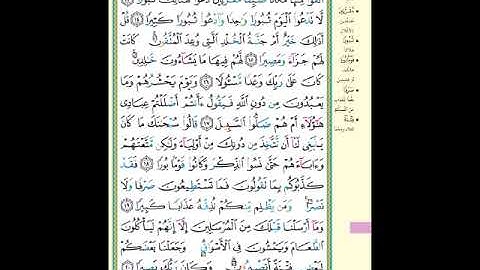 لَّا تَدْعُوا۟ ٱلْيَوْمَ ثُبُورًا وَٰحِدًا وَٱدْعُوا۟ ثُبُورًا كَثِيرًا ۝١٤ قُلْ
أَذَٰلِكَ خَيْرٌ أَمْ جَنَّةُ ٱلْخُلْدِ ٱلَّتِى وُعِدَ ٱلْمُتَّقُونَ ۚ كَانَتْ
لَهُمْ جَزَآءً وَمَصِيرًا ۝١٥ لَّهُمْ فِيهَا مَا يَشَآءُونَ خَٰلِدِينَ ۚ
كَانَ عَلَىٰ رَبِّكَ وَعْدًا مَّسْـُٔولًا ۝١٦ وَيَوْمَ يَحْشُرُهُمْ وَمَا
يَعْبُدُونَ مِن دُونِ ٱللَّهِ فَيَقُولُ ءَأَنتُمْ أَضْلَلْتُمْ عِبَادِى
هَٰٓؤُلَآءِ أَمْ هُمْ ضَلُّوا۟ ٱلسَّبِيلَ ۝١٧ قَالُوا۟ سُبْحَٰنَكَ مَا كَانَ
يَنۢبَغِى لَنَآ أَن نَّتَّخِذَ مِن دُونِكَ مِنْ أَوْلِيَآءَ وَلَٰكِن مَّتَّعْتَهُمْ
وَءَابَآءَهُمْ حَتَّىٰ نَسُوا۟ ٱلذِّكْرَ وَكَانُوا۟ قَوْمًۢا بُورًا ۝١٨ فَقَدْ
كَذَّبُوكُم بِمَا تَقُولُونَ فَمَا تَسْتَطِيعُونَ صَرْفًا وَلَا
نَصْرًا ۚ وَمَن يَظْلِم مِّنكُمْ نُذِقْهُ عَذَابًا كَبِيرًا ۝١٩
وَمَآ أَرْسَلْنَا قَبْلَكَ مِنَ ٱلْمُرْسَلِينَ إِلَّآ إِنَّهُمْ لَيَأْكُلُونَ
ٱلطَّعَامَ وَيَمْشُونَ فِى ٱلْأَسْوَاقِ ۗ وَجَعَلْنَا بَعْضَكُمْ
لِبَعْضٍ فِتْنَةً أَتَصْبِرُونَ ۗ وَكَانَ رَبُّكَ بَصِيرًا ۝٢٠